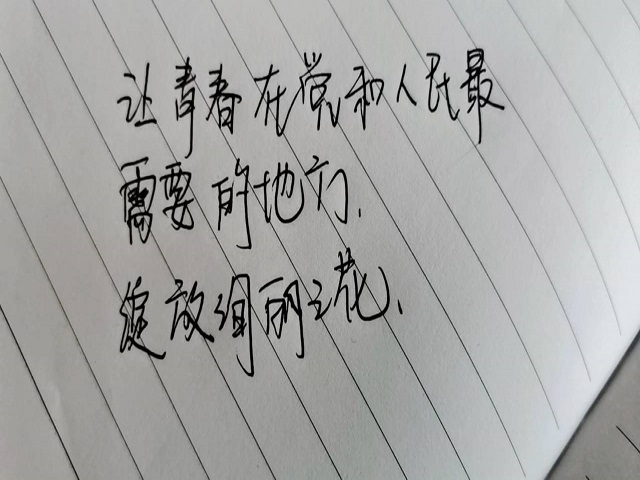 让青春在党和人民最
需要的地方、
绽放绚丽之花、